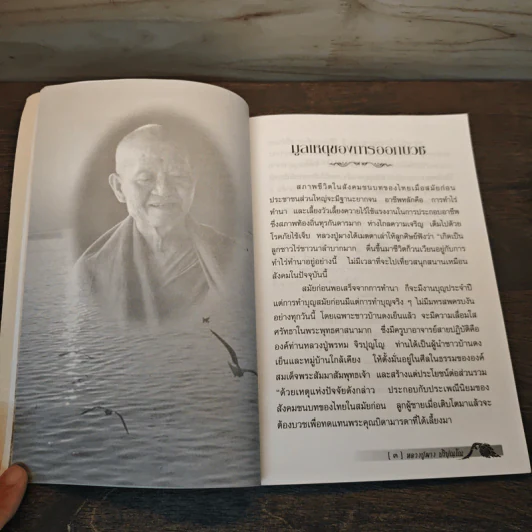 มูลเหตุของการออกบวช
สภาพชีวิตในสังคมชนบทของไทยเมื่อสมัยก่อน
ประชาชนส่วนใหญ่จะมีฐานะยากจน อาชีพหลักคือ การทำไร่
ทำนา และเลี้ยงวัวเลี้ยงควายไว้ใช้แรงงานในการประกอบอาชีพ
ซึ่งสภาพท้องถิ่นทุรกันดารมาก ห่างไกลความเจริญ เต็มไปด้วย
โรคภัยไข้เจ็บ หลวงปู่ผางได้เมตตาเล่าให้ลูกศิษย์ฟังว่า "เกิดเป็น
ลูกชาวไร่ชาวนาลำบากมาก ตื่นขึ้นมาชีวิตก็วนเวียนอยู่กับการ
ทำไร่ทำนาอยู่อย่างนี้ ไม่มีเวลาที่จะไปเที่ยวสนุกสนานเหมือน
สังคมในปัจจุบันนี้
สมัยก่อนพอเสร็จจากการทำนา ก็จะมีงานบุญประจำปี
แต่การทำบุญสมัยก่อนมีแต่การทำบุญจริง ๆ ไม่มีมหรสพครบงัน
อย่างทุกวันนี้ โดยเฉพาะชาวบ้านดงเย็นแล้ว จะมีความเลื่อมใส
ศรัทธาในพระพุทธศาสนามาก ซึ่งมีครูบาอาจารย์สายปฏิบัติคือ
องค์ท่านหลวงปู่พรหม จิรปุญโญ ท่านได้เป็นผู้นำชาวบ้านดง
เย็นและหมู่บ้านใกล้เคียง ให้ตั้งมั่นอยู่ในศีลในธรรมขององค์
สมเด็จพระสัมมาสัมพุทธเจ้า และสร้างแต่ประโยชน์ต่อส่วนรวม
"ด้วยเหตุแห่งปัจจัยดังกล่าว ประกอบกับประเพณีนิยมของ
สังคมชนบทของไทยในสมัยก่อน ลูกผู้ชายเมื่อเติบโตมาแล้วจะ
ต้องบวชเพื่อทดแทนพระคุณบิดามารดาที่ได้เลี้ยงมา
หลวงปู่ผาง